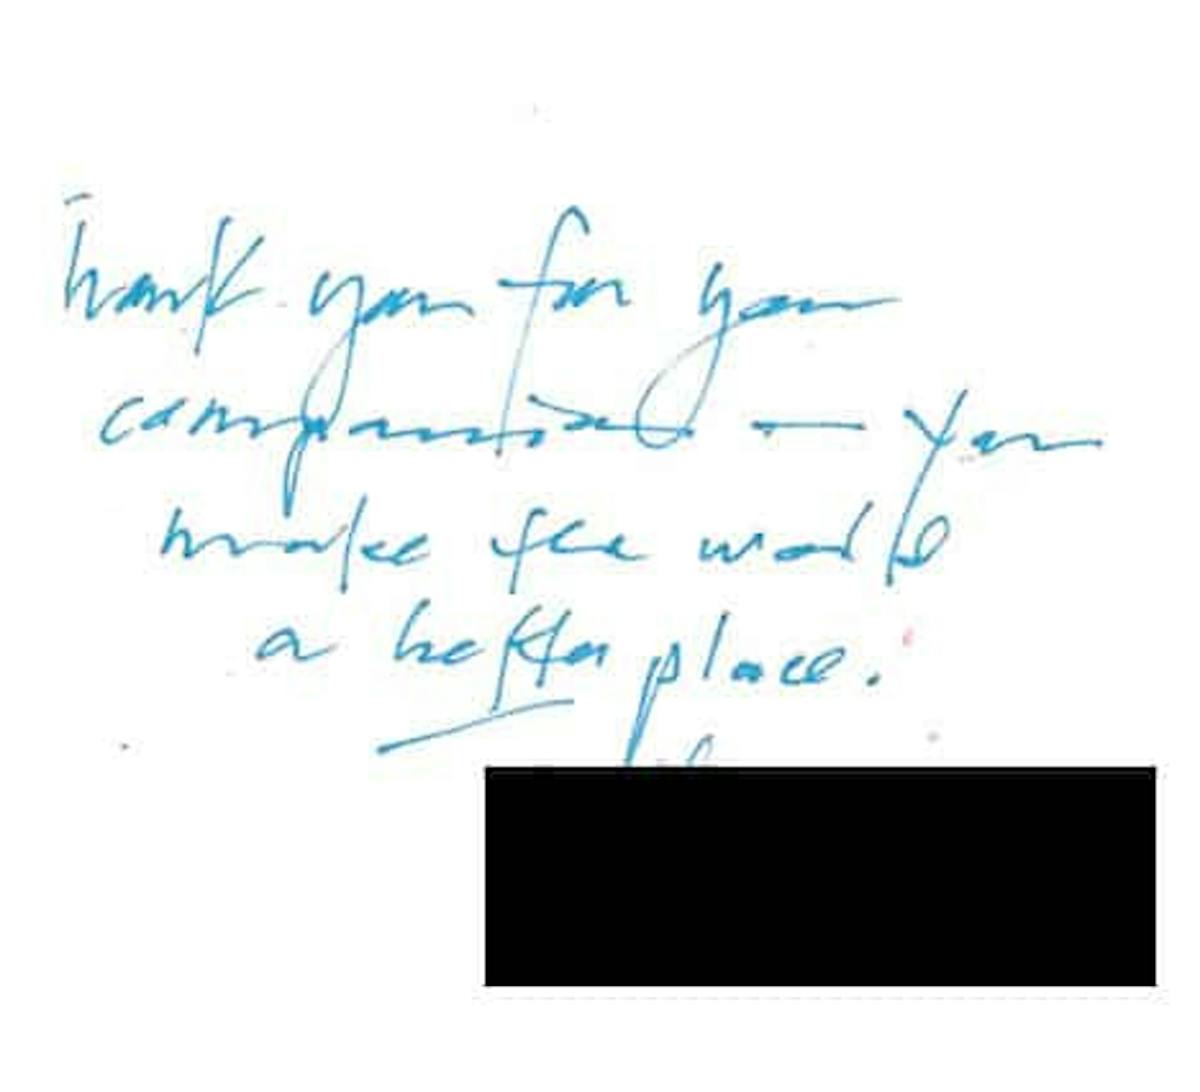 Thank you for your
compassion — You
make the world
a better place.